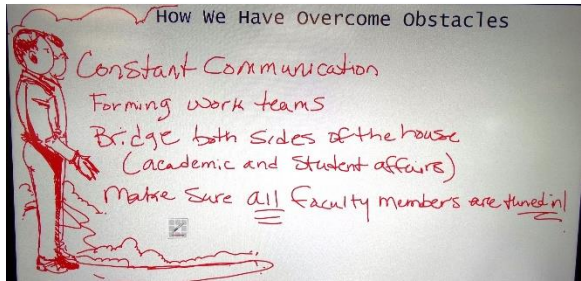 How We Have Overcome Obstacles
Constant Communication
Forming work teams
Bridge both sides of the house
(academic and Student affairs)
Make Sure all faculty members are tuned in!